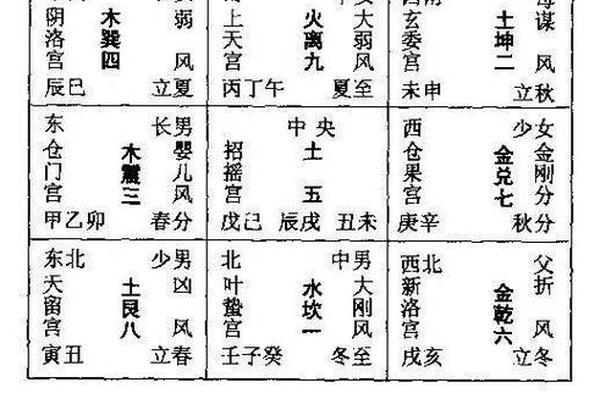 阴洛宫
木巽四
弱风
辰巳 立夏
上天宫
火离九
大弱风
丙丁午 夏至
玄委宫
土坤二
谋风
未申 立秋
东 长男
仓门宫
木震三
婴儿风
甲乙卯 春分
中央
招摇宫
土五
戊己 辰戌 丑未
西 少女
仓果宫
金兑七
金刚分
庚辛 秋分
东北 少男
天留宫
土艮八
凶风
寅丑 立春
北 中男
叶蛰宫
水坎一
大刚风
壬子癸 冬至
西北 父
新洛宫
金乾六
折风
戌亥 立冬